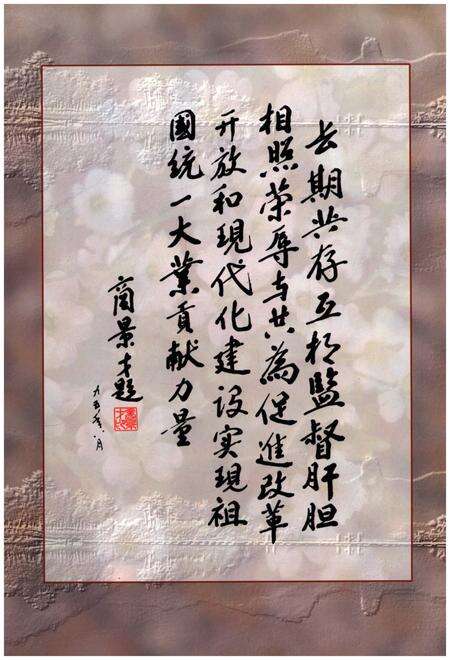 长期共存互相监督肝胆
相照荣辱与共為促進改革
开放和現代化建设实現祖
國统一大業貢献力量
商景才题
九五年八月